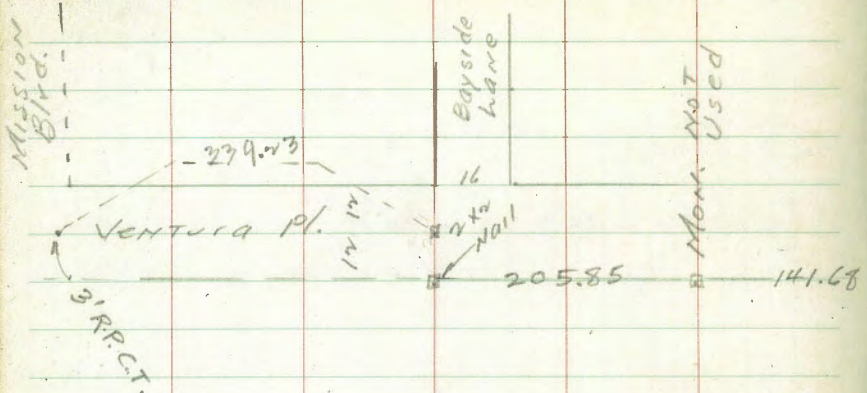 Mission
Blvd.
Bayside
Lane
Mon. Not
Used
239.23
16
Ventura Pl.
12 12
2x2
Nail
205.85
141.68
3' R.P.C.T.